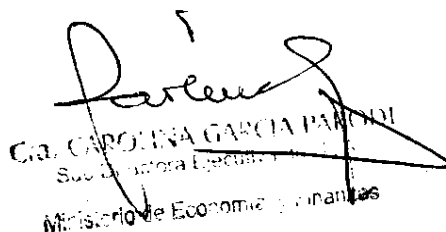 Cra. CAROLINA GARCIA PARODI
Sub Directora Ejecutiva
Ministerio de Economía y Finanzas